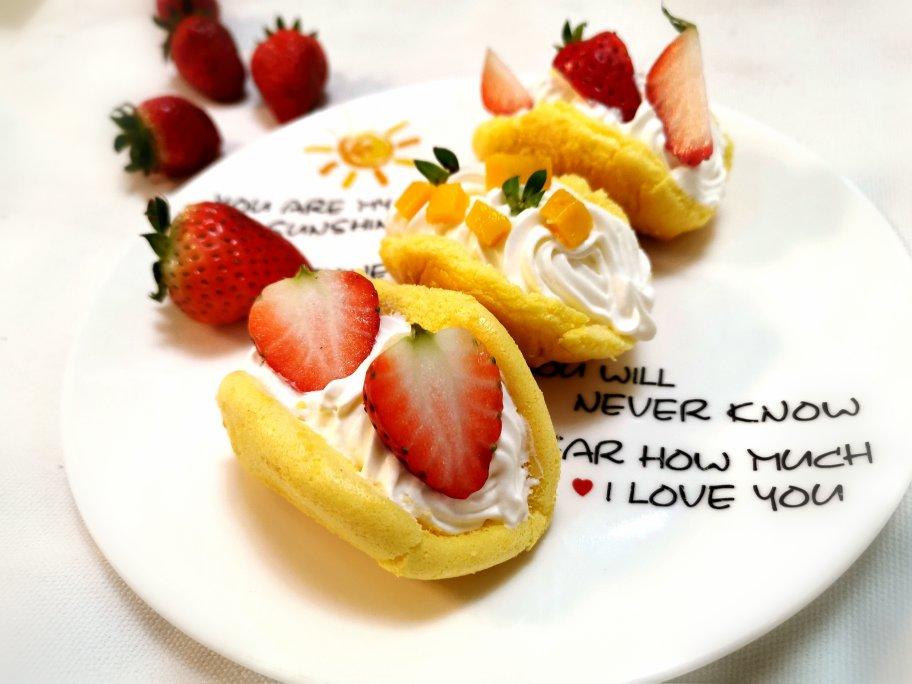 YOU ARE MY
SUNSHIN
YOU WILL
NEVER KNOW
EAR HOW MUCH
I LOVE YOU